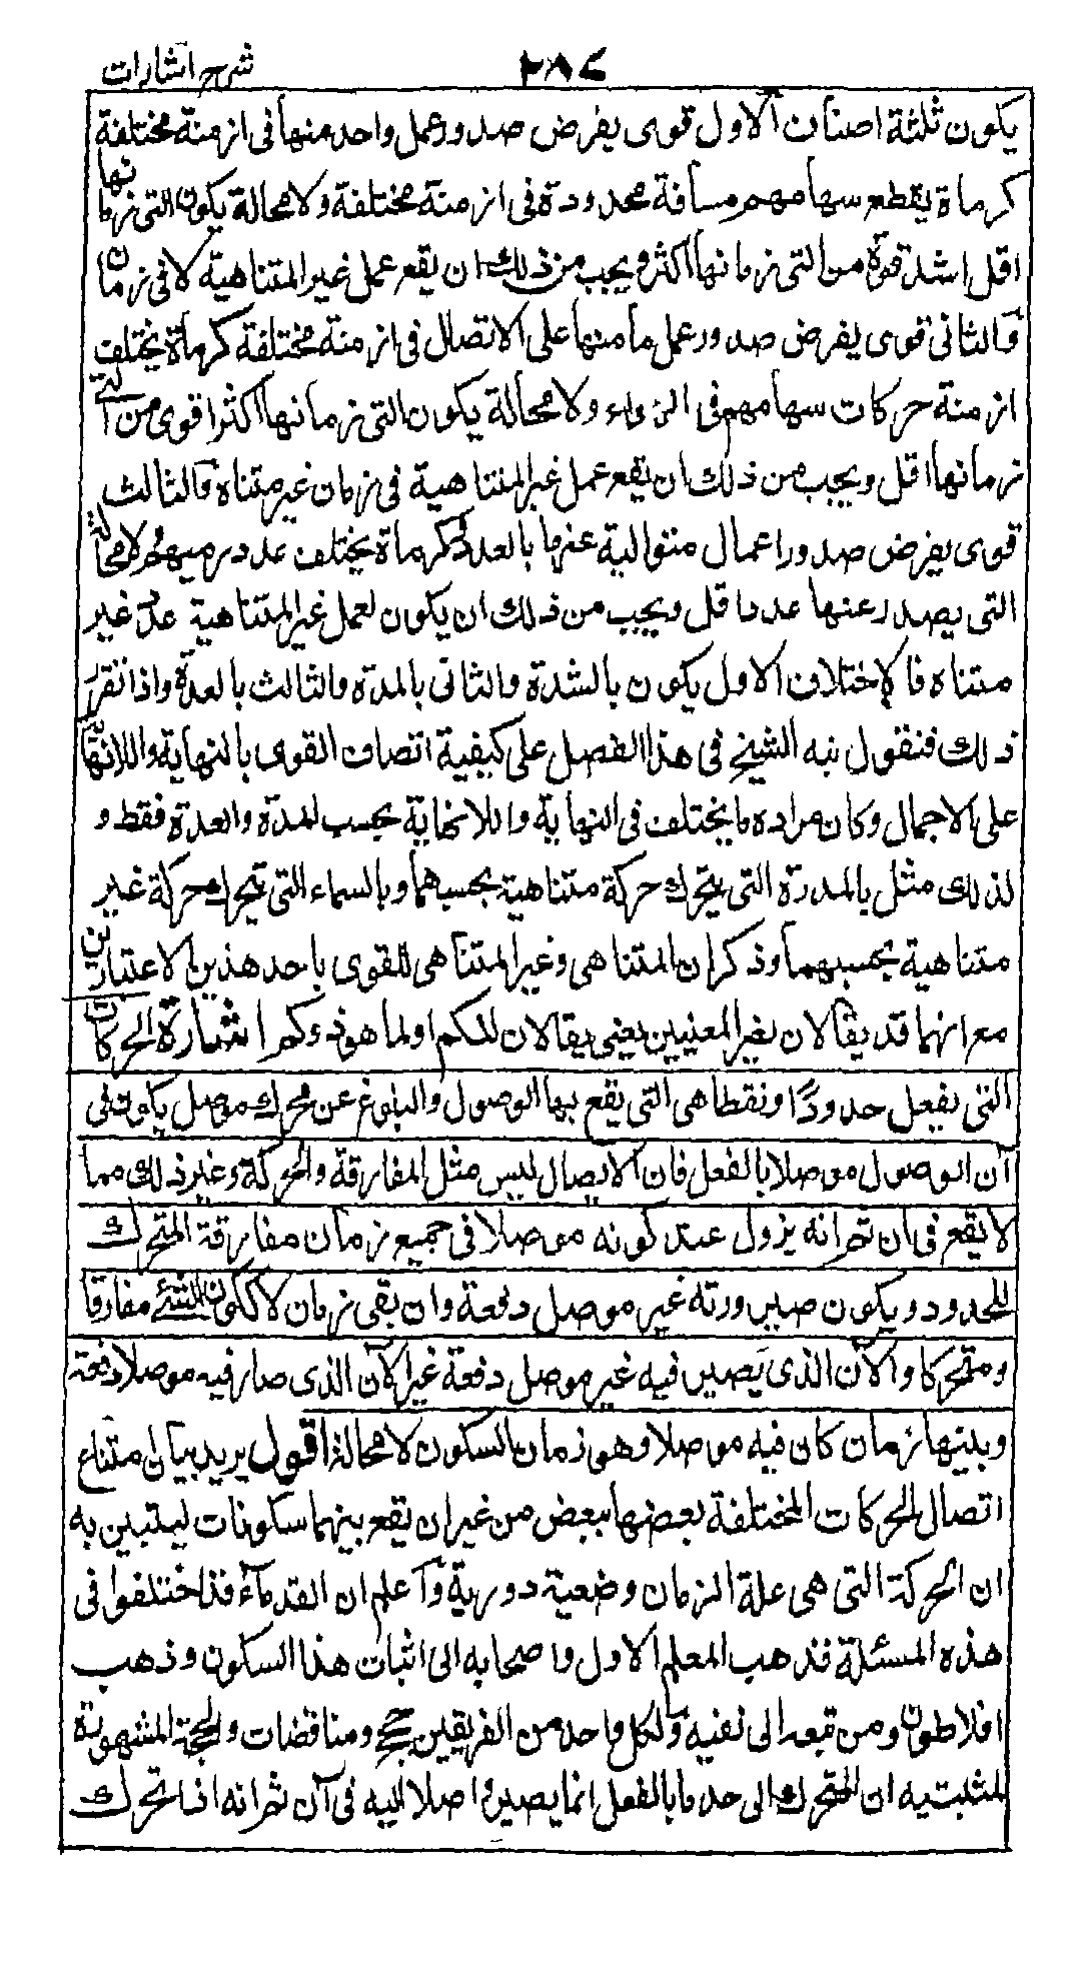 شرح اشارات
٢٨٧
يكون ثلثة اصناف الاول قوى يفرض صدور عمل واحد منها فى ازمنة مختلفة
كرماة يقطع سهامهم مسافة محدودة فى ازمنة مختلفة ولا محالة يكون التى زمانها
اقل اشد قوة من التى زمانها اكثر ويجب من ذلك ان يقع عمل غير المتناهية لا فى زمان
والثانى قوى يفرض صدور عمل ما منها على الاتصال فى ازمنة مختلفة كرماة يختلف
ازمنة حركات سهامهم فى الهواء ولا محالة يكون التى زمانها اكثر اقوى من التى
زمانها اقل ويجب من ذلك ان يقع عمل غير المتناهية فى زمان غير متناه والثالث
قوى يفرض صدور اعمال متوالية عنها بالعدد كرماة يختلف عدد رميهم ولا محالة
التى يصدر عنها عدد اقل ويجب من ذلك ان يكون لعمل غير المتناهية عدد غير
متناه فالاختلاف الاول يكون بالشدة والثانى بالمدة والثالث بالعدة واذا تقرر
ذلك فنقول نبه الشيخ فى هذا الفصل على كيفية اتصاف القوى بالنهاية واللانهاية
على الاجمال وكان مراده ما يختلف فى النهاية واللانهاية بحسب المدة والعدة فقط و
لذلك مثل بالمدرة التى يتحرك حركة متناهية بحسبهما وبالسماء التى تتحرك حركة غير
متناهية بحسبهما وذكر ان المتناهى وغير المتناهى للقوى باحد هذين الاعتبارين
مع انهما قد يقالان بغير المعنيين يعنى يقالان للكم او لما هو ذو كم اشارة الحركات
التى تفعل حدودًا ونقطا هى التى يقع بها الوصول والبلوغ عن محرك موصل يكون فى
آن الوصول موصلا بالفعل فان الايصال ليس مثل المفارقة والحركة وغير ذلك مما
لا يقع فى ان ثم انه يزول عنه كونه موصلا فى جميع زمان مفارقة المتحرك
للحدود ويكون صيرورته غير موصل دفعة وان بقى زمان لا ككون الشئ مفارقا
ومتحركا والآن الذى يصير فيه غير موصل دفعة غير الآن الذى صار فيه موصلا دفعة
وبينهما زمان كان فيه موصلا وهو زمان السكون لا محالة اقول يريد بيان امتناع
اتصال الحركات المختلفة بعضها ببعض من غير ان يقع بينهما سكونات ليتبين به
ان الحركة التى هى علة الزمان وضعية دورية وآعلم ان القدماء قد اختلفوا فى
هذه المسئلة فذهب المعلم الاول واصحابه الى اثبات هذا السكون وذهب
افلاطون ومن تبعه الى نفيه ولكل واحد من الفريقين حجج ومناقضات والحجة المشهورة
لمثبتيه ان المتحرك الى حد ما بالفعل انما يصير واصلا اليه فى آن ثم انه اذا تحرك